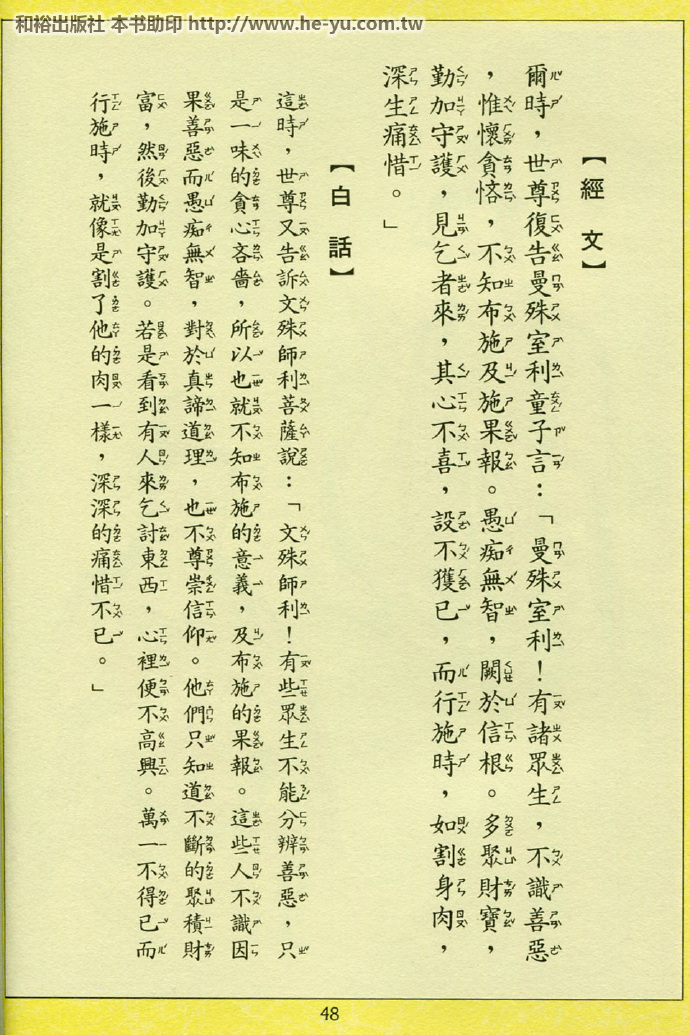 和裕出版社 本书助印 http://www.he-yu.com.tw
【經 文】
爾時，世尊復告曼殊室利童子言：「曼殊室利！有諸眾生，不識善惡
，惟懷貪悋，不知布施及施果報。愚痴無智，闕於信根。多聚財寶，
勤加守護，見乞者來，其心不喜，設不獲已，而行施時，如割身肉，
深生痛惜。」
【白 話】
這時，世尊又告訴文殊師利菩薩說：「文殊師利！有些眾生不能分辨善惡，只
是一味的貪心吝嗇，所以也就不知布施的意義，及布施的果報。這些人不識因
果善惡而愚痴無智，對於真諦道理，也不尊崇信仰。他們只知道不斷的聚積財
富，然後勤加守護。若是看到有人來乞討東西，心裡便不高興。萬一不得已而
行施時，就像是割了他的肉一樣，深深的痛惜不已。」
48